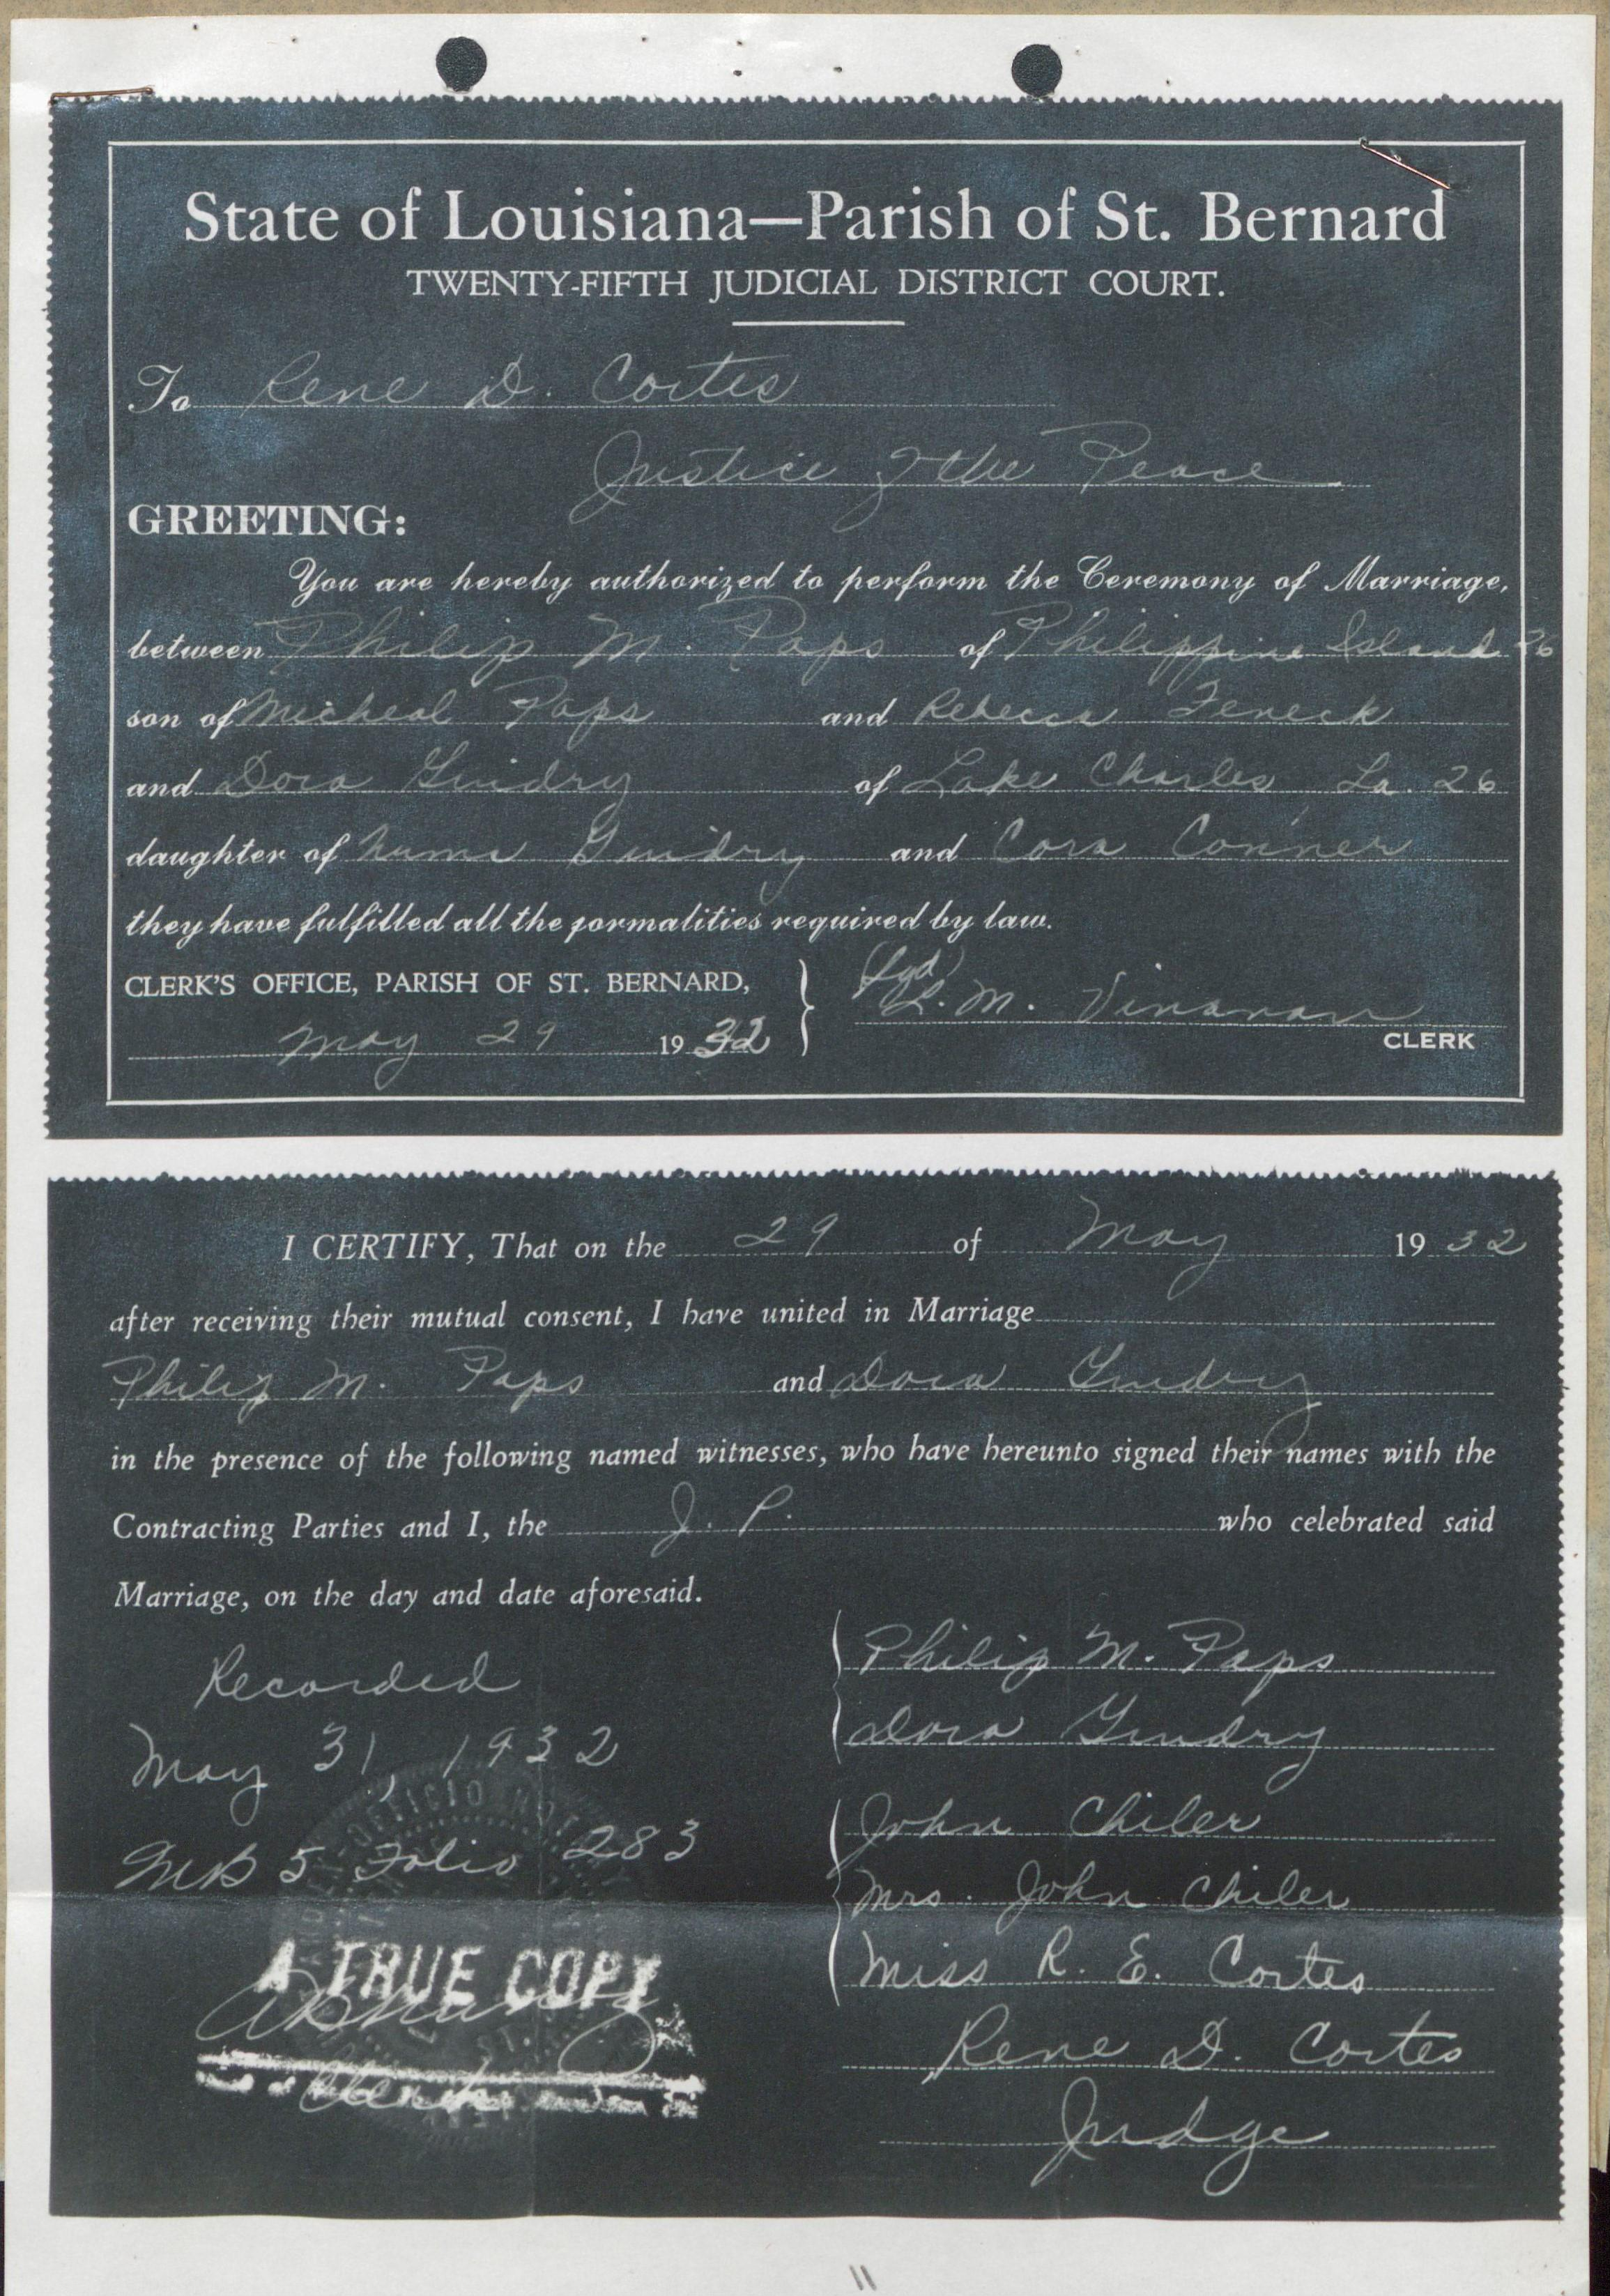 State of Louisiana—Parish of St. Bernard
TWENTY-FIFTH JUDICIAL DISTRICT COURT.
To Rene D. Cortes
Justice of the Peace
GREETING:
You are hereby authorized to perform the Ceremony of Marriage,
between Philip M. Paps of Philippine Island 26
son of Micheal Paps and Rebecca Fereck
and Dora Guidry of Lake Charles La. 26
daughter of Numa Guidry and Cora Conner
they have fulfilled all the formalities required by law.
CLERK'S OFFICE, PARISH OF ST. BERNARD,
(Sgd)
L. M.
May 29 1932
CLERK
I CERTIFY, That on the 29 of May 1932
after receiving their mutual consent, I have united in Marriage
Philip M. Paps and Dora Guidry
in the presence of the following named witnesses, who have hereunto signed their names with the
Contracting Parties and I, the J. P. who celebrated said
Marriage, on the day and date aforesaid.
Philip M. Paps
Recorded
Dora Guidry
May 31, 1932
John Chiler
MB 5 Folio 283
Mrs. John Chiler
Miss R. E. Cortes
A TRUE COPY
Rene D. Cortes
Clerk
Judge
11